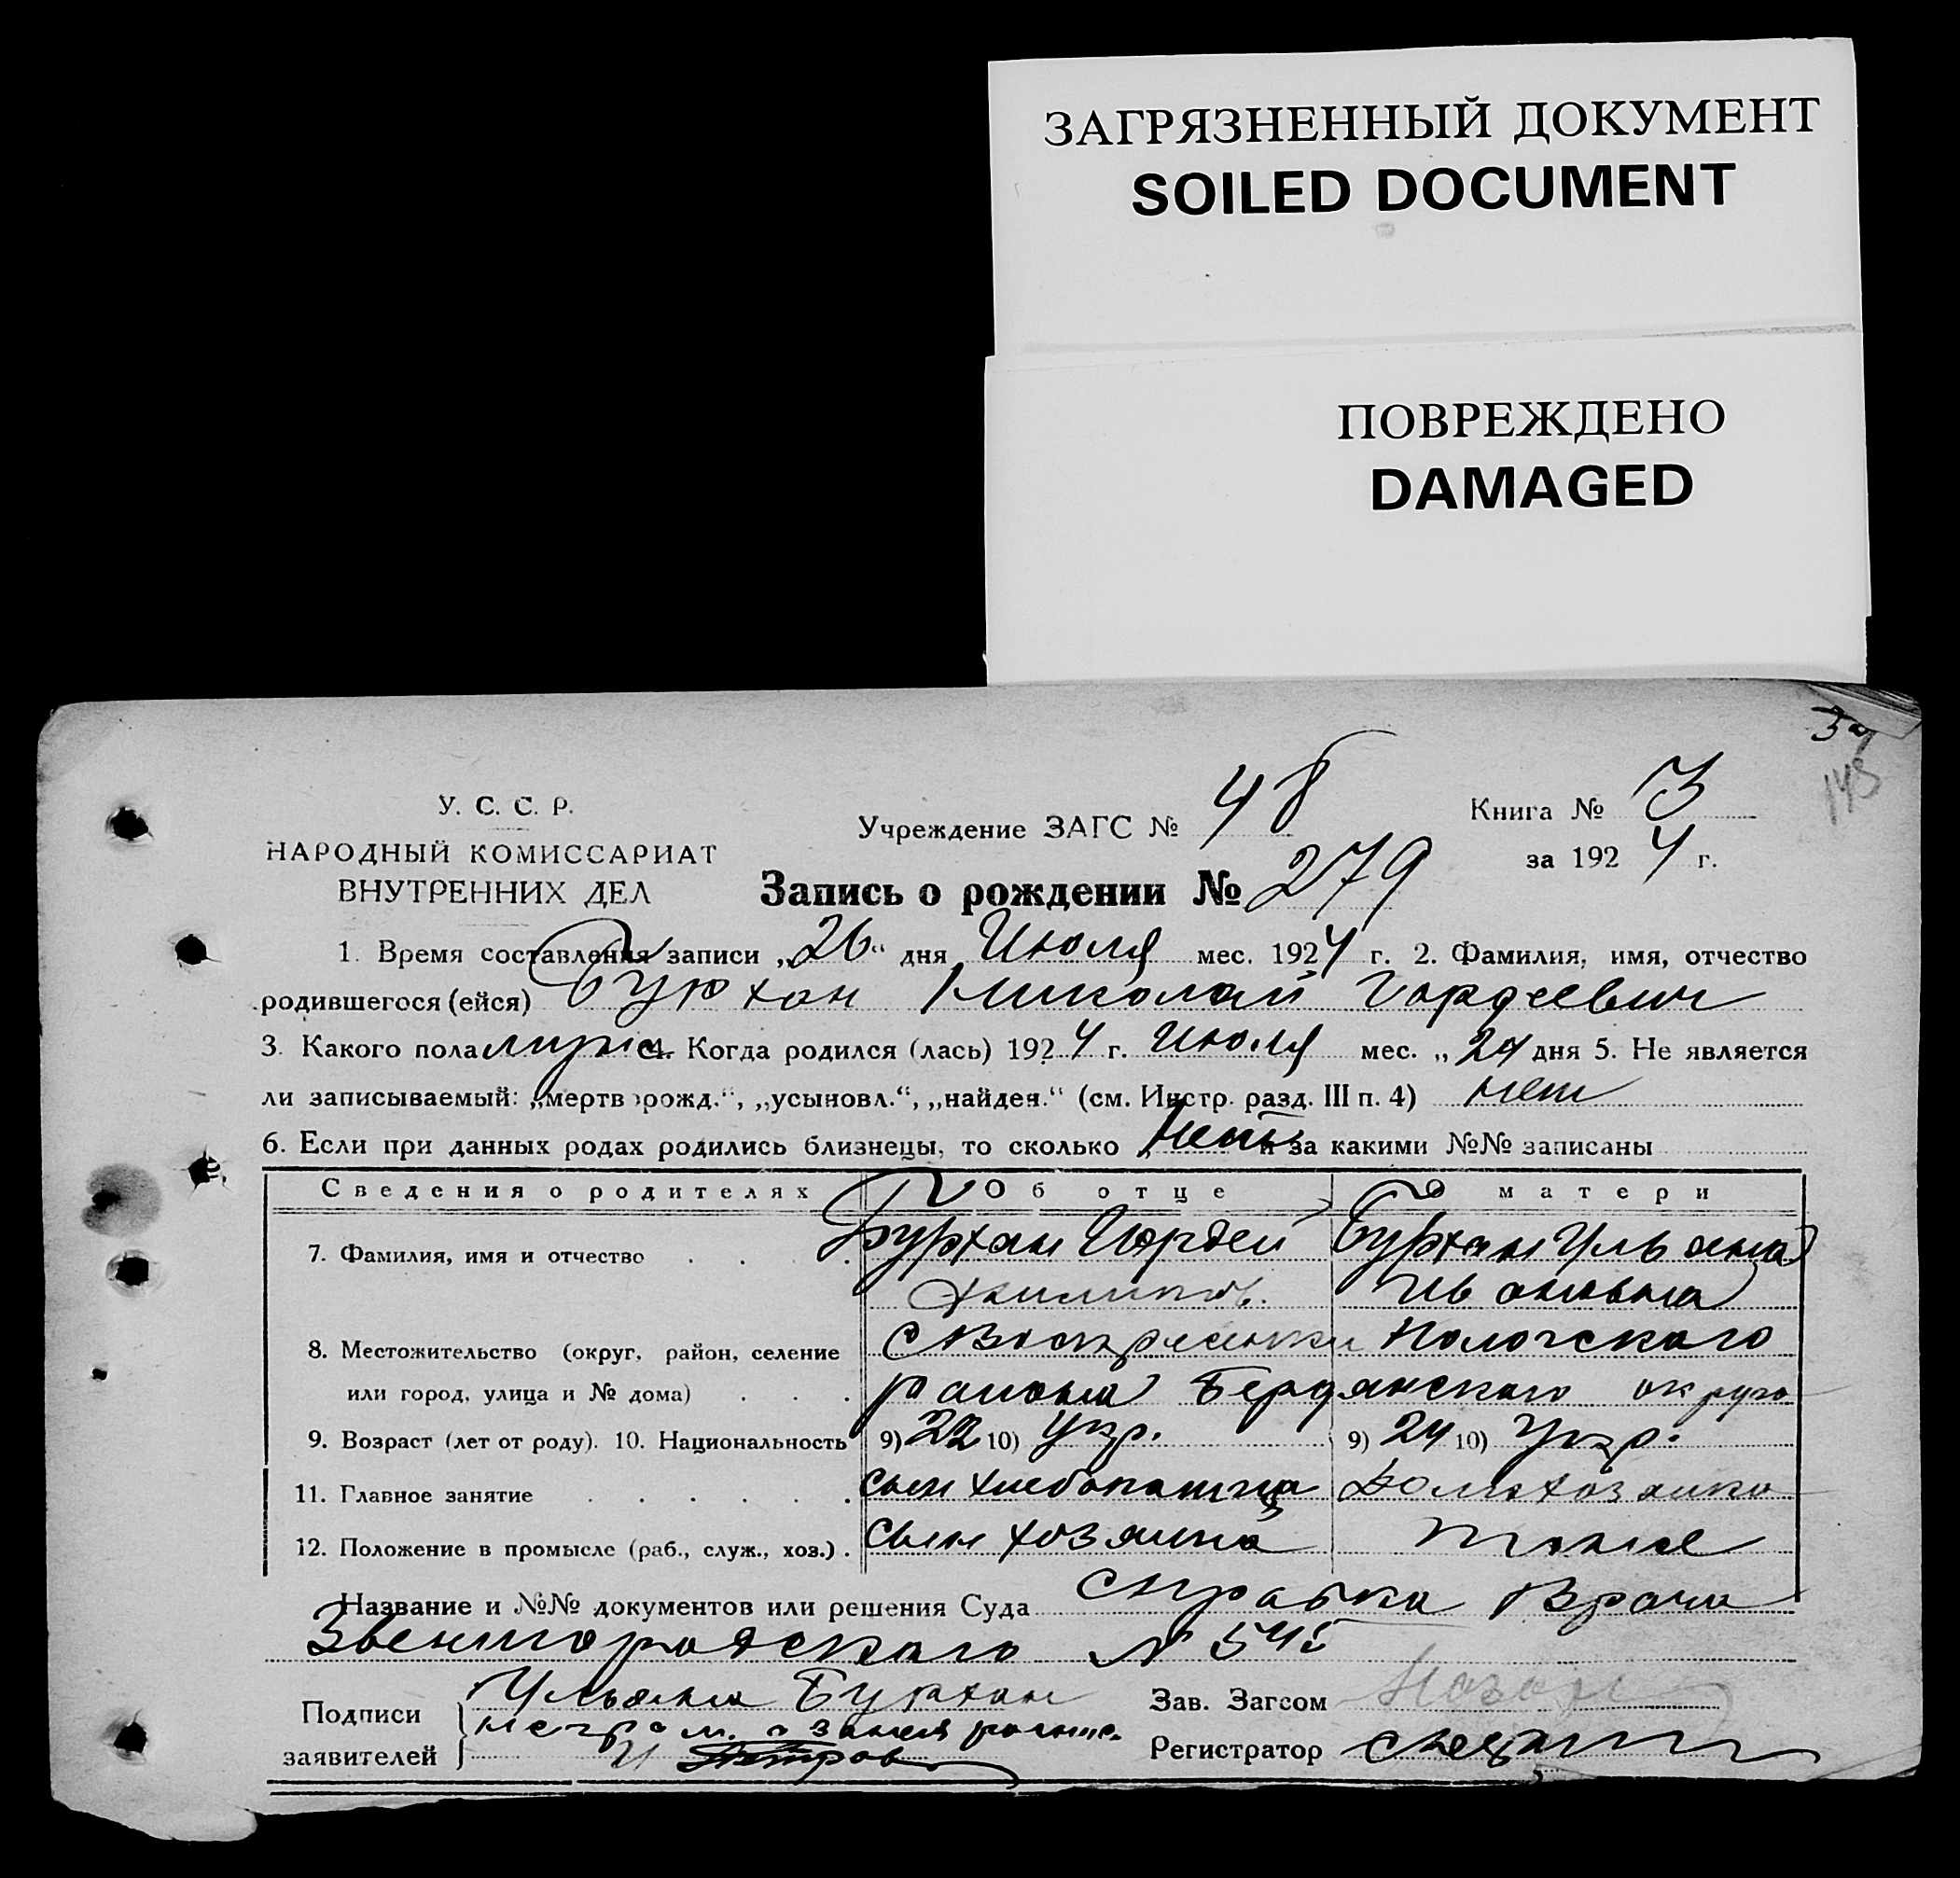 ЗАГРЯЗНЕННЫЙ ДОКУМЕНТ
SOILED DOCUMENT
ПОВРЕЖДЕНО
DAMAGED
39
143
У. С. С. Р.
НАРОДНЫЙ КОМИССАРИАТ
ВНУТРЕННИХ ДЕЛ
Учреждение ЗАГС № 48
Книга № 3
за 1924 г.
Запись о рождении № 279
1. Время составления записи „26“ дня Июля мес. 1924 г. 2. Фамилия, имя, отчество
родившегося (ейся) Бурхан Николай Гордеевич
3. Какого пола мужс. 4. Когда родился (лась) 1924 г. Июля мес. „24 дня 5. Не является
ли записываемый: „мертворожд.“, „усыновл.“, „найден.“ (см. Инстр. разд. III п. 4) нет
6. Если при данных родах родились близнецы, то сколько нет и за какими №№ записаны
Сведения о родителях Об отце О матери
7. Фамилия, имя и отчество Бурхан Гордей Бурхан Ульяна
Ивановна
8. Местожительство (округ, район, селение с Воскресенки Пологского
или город, улица и № дома) района Бердянского округа
9. Возраст (лет от роду). 10. Национальность 9) 22 10) Укр. 9) 24 10) Укр.
11. Главное занятие сын хлебопашца Домохозяйка
12. Положение в промысле (раб., служ., хоз.) сын хозяина тоже
Название и №№ документов или решения Суда справка Врача
Звенигородского № 545
Подписи заявителей Ульяна Бурхан
неграм. а за нея роспис.
Зав. Загсом
Регистратор